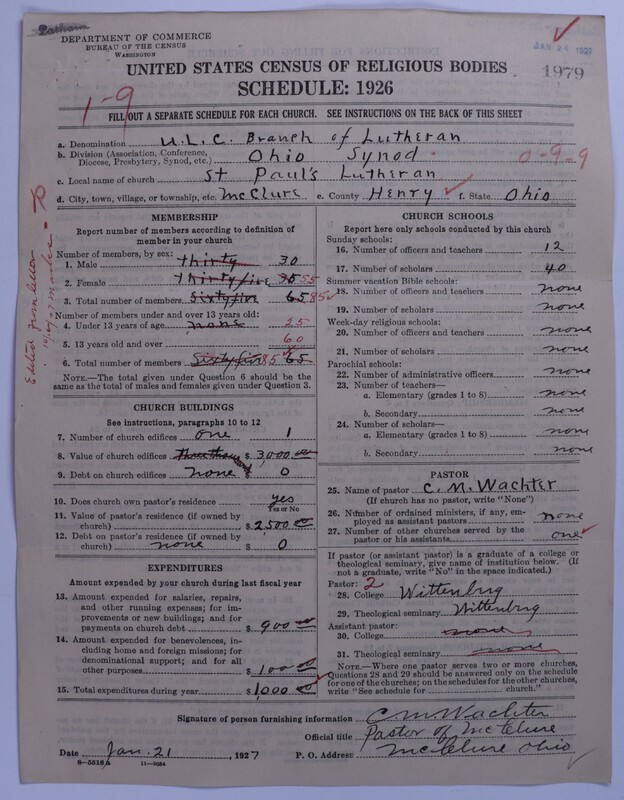 Latham
DEPARTMENT OF COMMERCE
BUREAU OF THE CENSUS
WASHINGTON
JAN 24 1927
1979
UNITED STATES CENSUS OF RELIGIOUS BODIES
SCHEDULE: 1926
1-9
FILL OUT A SEPARATE SCHEDULE FOR EACH CHURCH. SEE INSTRUCTIONS ON THE BACK OF THIS SHEET
a. Denomination U.L.C. Branch of Lutheran
b. Division (Association, Conference, Diocese, Presbytery, Synod, etc.) Ohio Synod. 0-9-9
c. Local name of church St Paul's Lutheran
d. City, town, village, or township, etc. McClure e. County Henry f. State Ohio
MEMBERSHIP
Report number of members according to definition of
member in your church
Number of members, by sex:
1. Male thirty 30
2. Female thirty five 35 55
3. Total number of members Sixty five 65 85
Number of members under and over 13 years old:
4. Under 13 years of age none 25
5. 13 years old and over 60
6. Total number of members Sixty five 85 65
NOTE.—The total given under Question 6 should be
the same as the total of males and females given under Question 3.
Edited from letter
CHURCH BUILDINGS
See instructions, paragraphs 10 to 12
7. Number of church edifices one 1
8. Value of church edifices $3,000.00
9. Debt on church edifices none $ 0
10. Does church own pastor's residence yes
Yes or No
11. Value of pastor's residence (if owned by
church) $2500.00
12. Debt on pastor's residence (if owned by
church) none $ 0
EXPENDITURES
Amount expended by your church during last fiscal year
13. Amount expended for salaries, repairs,
and other running expenses; for im-
provements or new buildings; and for
payments on church debt $900.00
14. Amount expended for benevolences, in-
cluding home and foreign missions; for
denominational support; and for all
other purposes $100.00
15. Total expenditures during year $1000.00
CHURCH SCHOOLS
Report here only schools conducted by this church
Sunday schools:
16. Number of officers and teachers 12
17. Number of scholars 40
Summer vacation Bible schools:
18. Number of officers and teachers none
19. Number of scholars none
Week-day religious schools:
20. Number of officers and teachers none
21. Number of scholars none
Parochial schools:
22. Number of administrative officers none
23. Number of teachers—
a. Elementary (grades 1 to 8) none
b. Secondary none
24. Number of scholars—
a. Elementary (grades 1 to 8) none
b. Secondary none
PASTOR
25. Name of pastor C. M. Wachter
(If church has no pastor, write "None")
26. Number of ordained ministers, if any, em-
ployed as assistant pastors none
27. Number of other churches served by the
pastor or his assistants one
If pastor (or assistant pastor) is a graduate of a college or
theological seminary, give name of institution below. (If
not a graduate, write "No" in the space indicated.)
Pastor: 2
28. College Wittenbrg
29. Theological seminary Wittenbrg
Assistant pastor:
30. College none
31. Theological seminary none
NOTE.—Where one pastor serves two or more churches,
Questions 28 and 29 should be answered only on the schedule
for one of the churches; on the schedules for the other churches,
write "See schedule for church."
Signature of person furnishing information C M Wachter
Official title Pastor of McClure
Date Jan. 21, 1927 P. O. Address McClure Ohio
8-5518a 11-9084